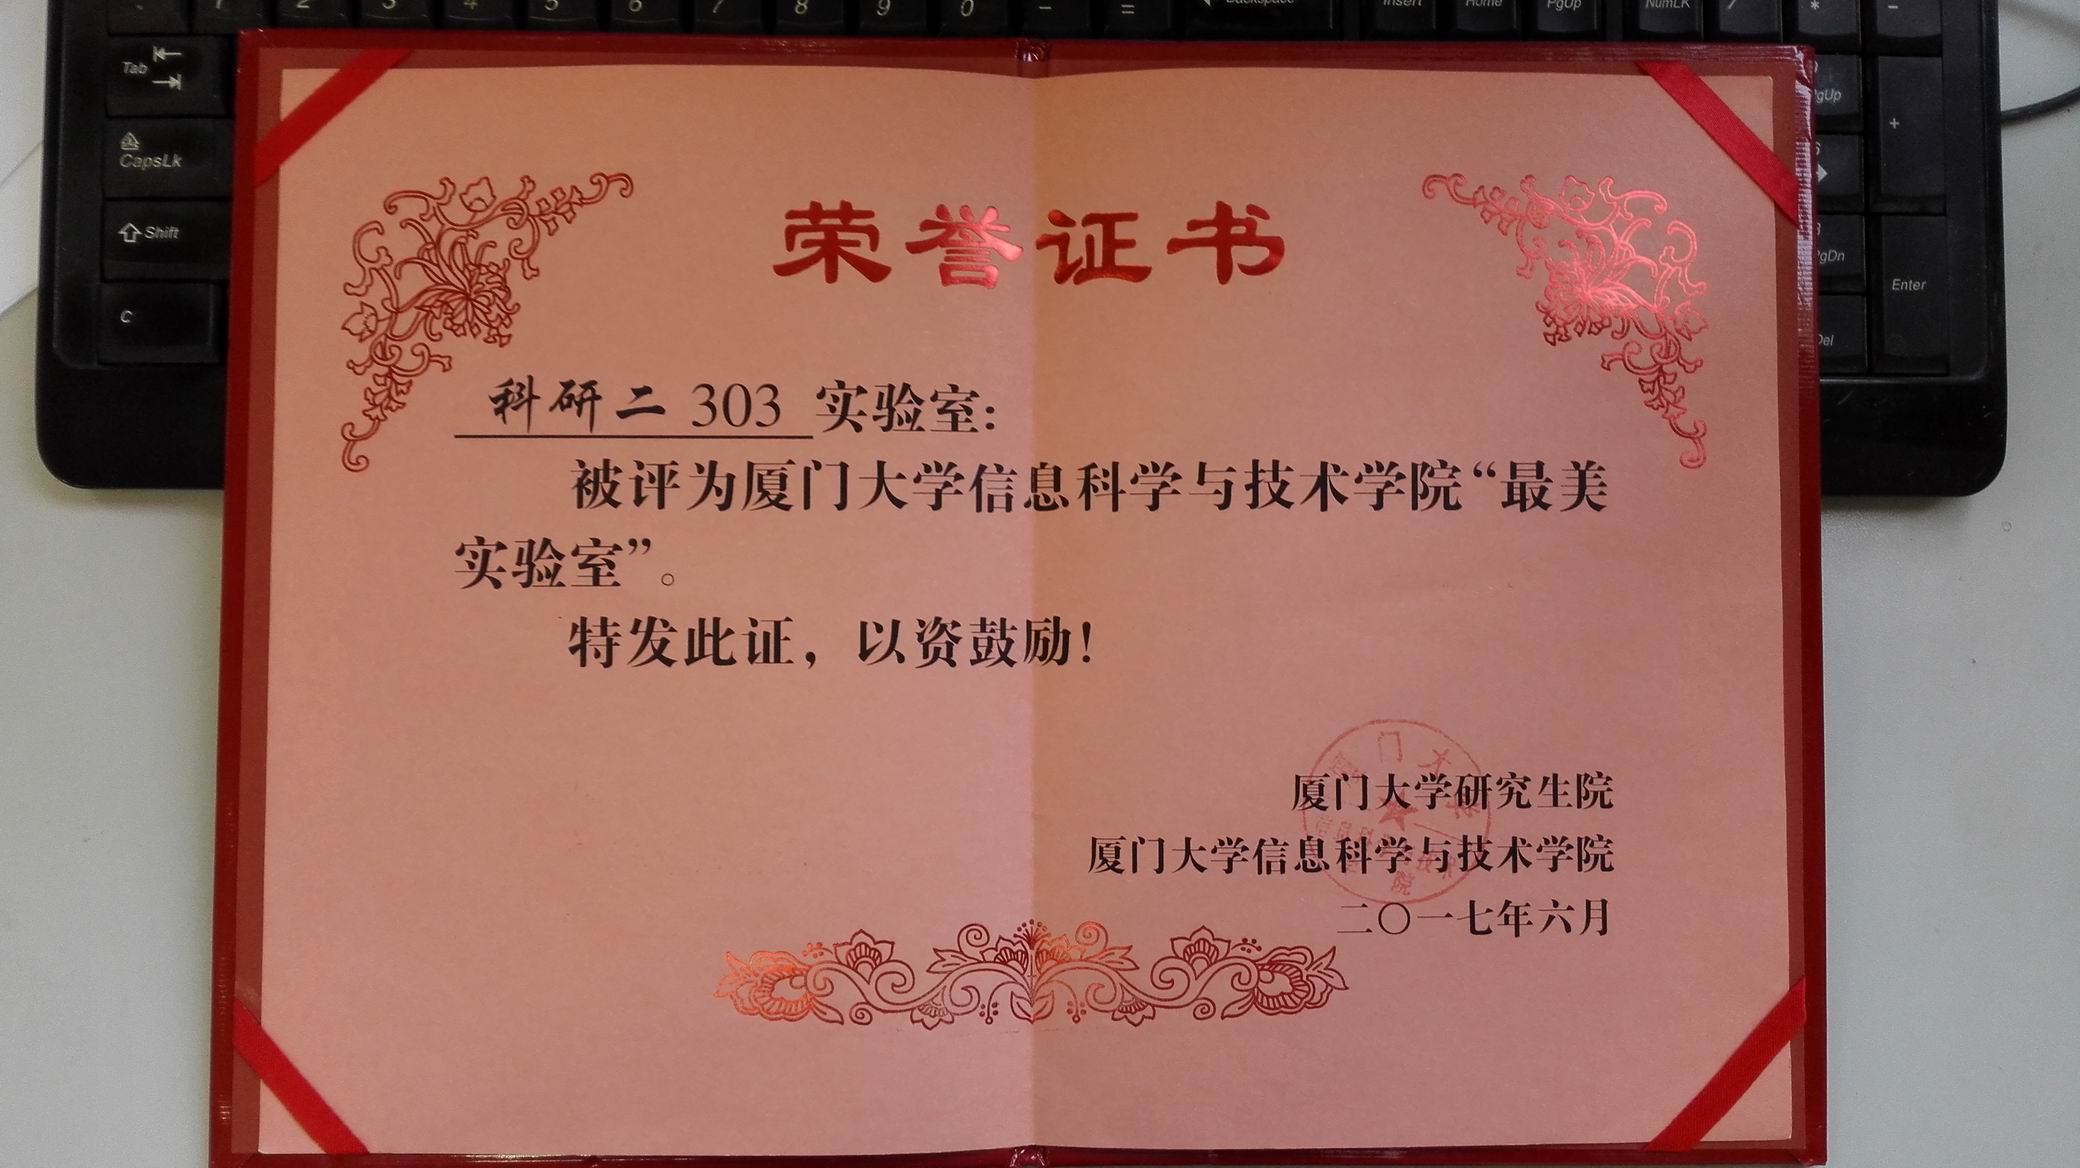 1 2 3 4 5 6 7 8 9 0 - = Backspace Insert Home PgUp NumLK / * -
Tab
CapsLk
Shift
C
PgUp +
6
3
PgDn
Enter
Del
荣誉证书
科研二 303 实验室:
被评为厦门大学信息科学与技术学院“最美
实验室”。
特发此证，以资鼓励!
厦门大学研究生院
厦门大学信息科学与技术学院
二〇一七年六月